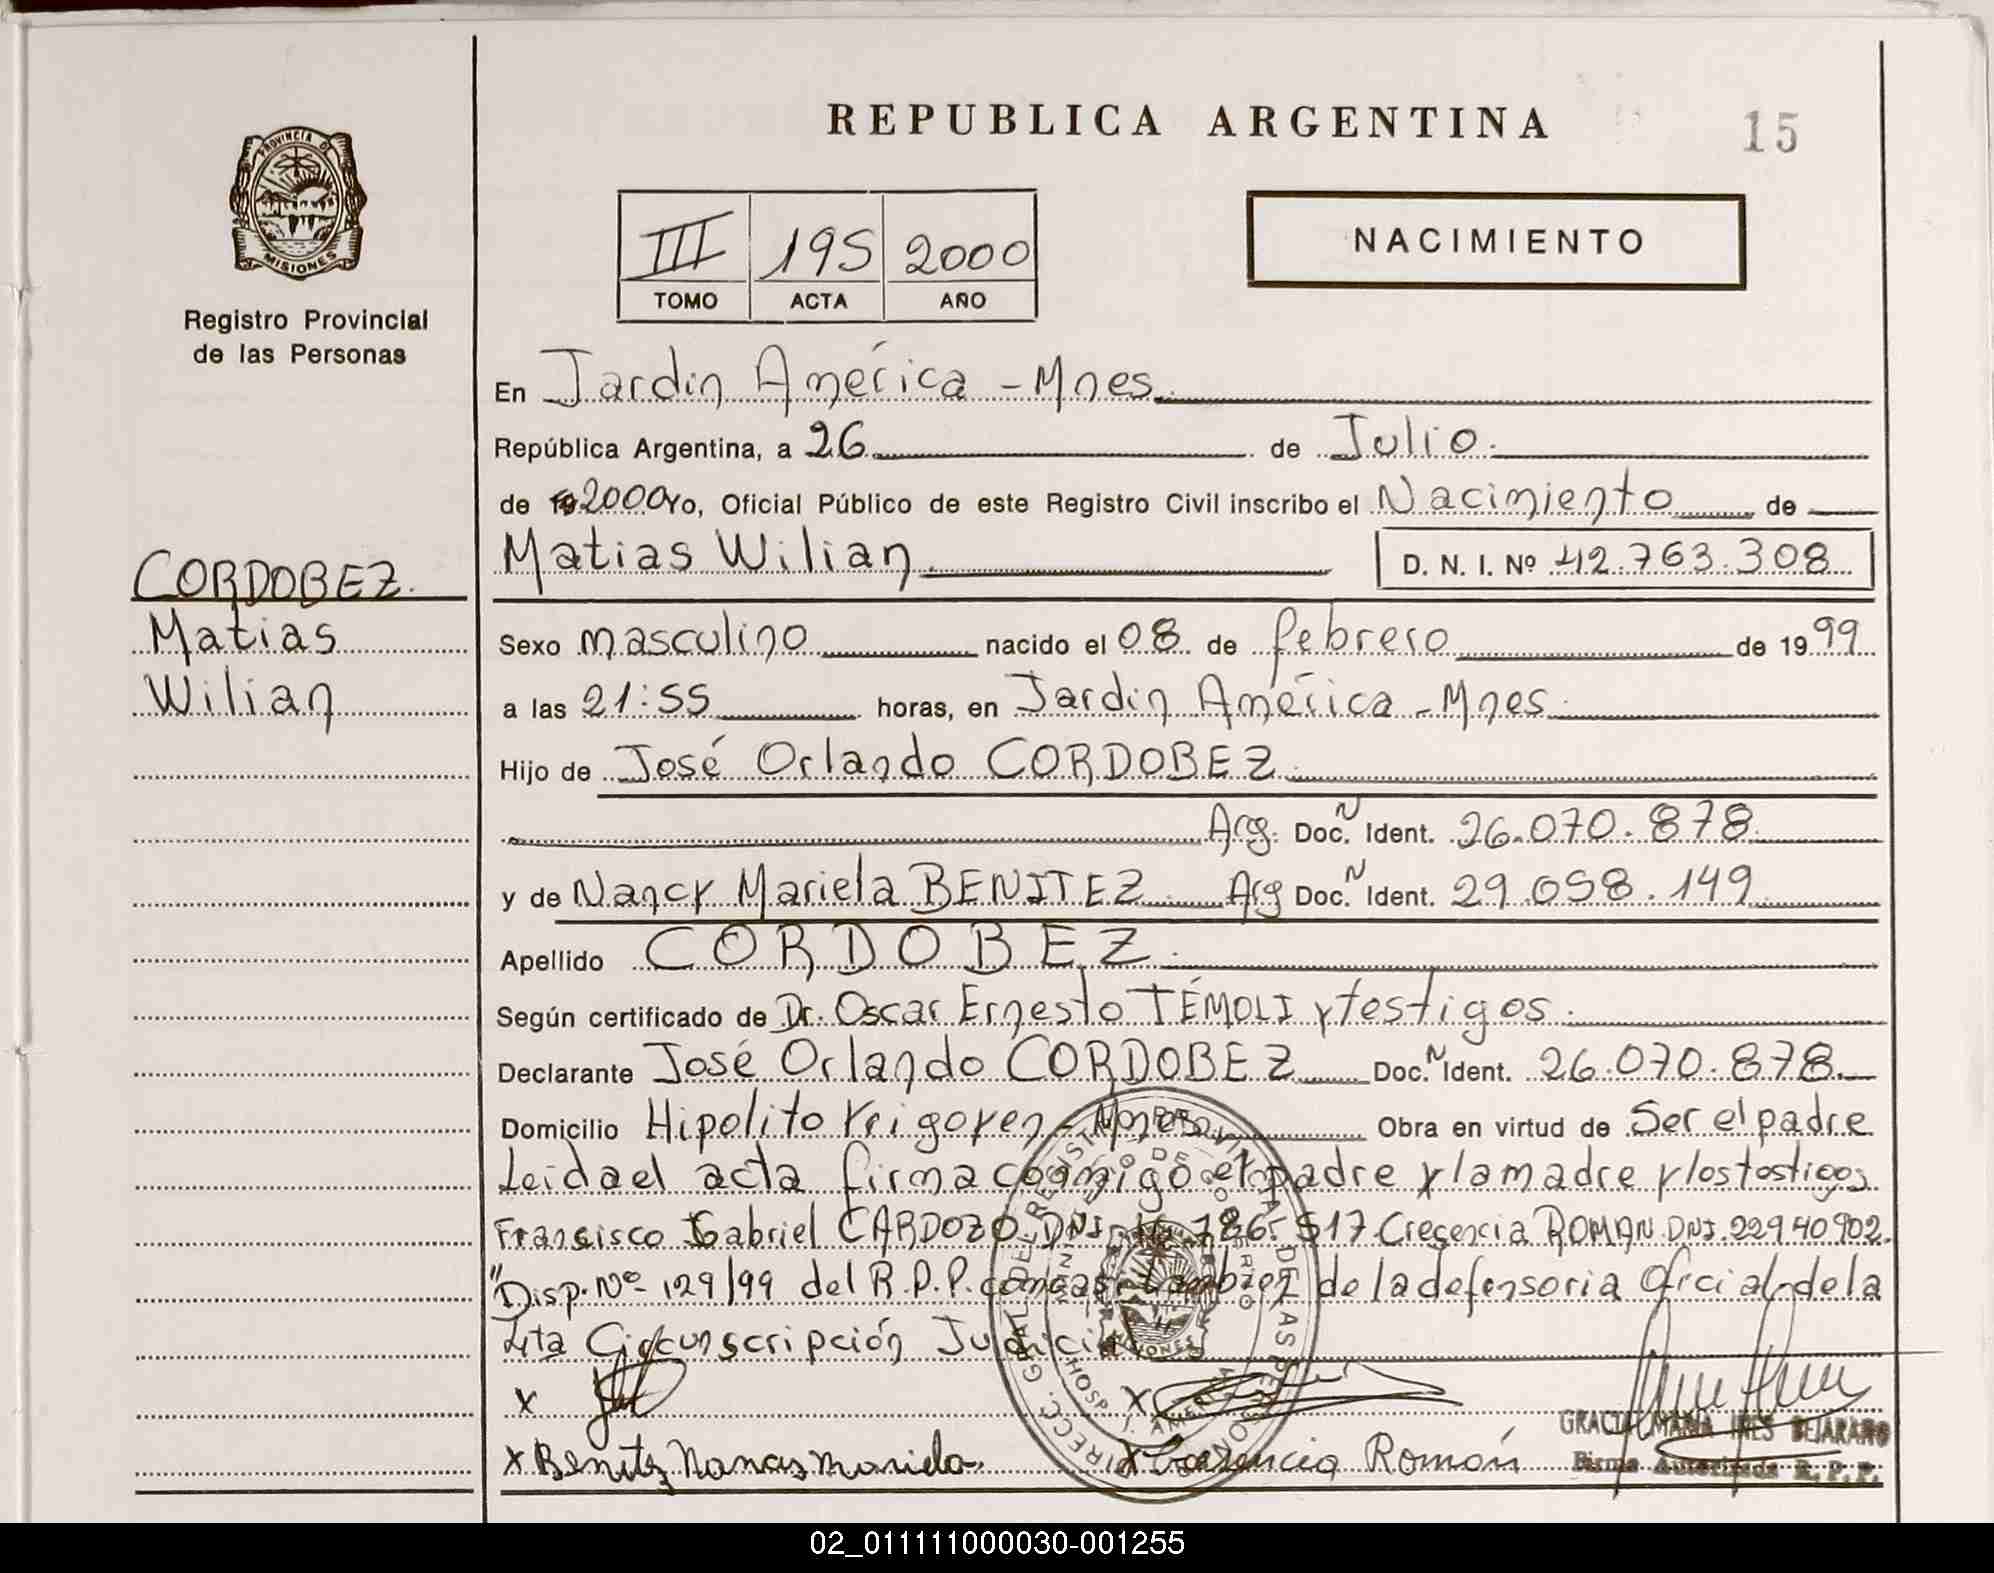 REPUBLICA ARGENTINA
15
PROVINCIA DE
MISIONES
Registro Provincial
de las Personas
NACIMIENTO
III 195 2000
TOMO ACTA AÑO
En Jardin América - Mnes.
República Argentina, a 26 de Julio.
de 19 2000 Yo, Oficial Público de este Registro Civil inscribo el Nacimiento de
Matias Wilian D. N. I. Nº 42.763.308
CORDOBEZ.
Matias
Wilian
Sexo masculino nacido el 08 de febrero de 1999
a las 21:55 horas, en Jardin América - Mnes.
Hijo de José Orlando CORDOBEZ
Arg. Doc. N Ident. 26.070.878
y de Nancy Mariela BENITEZ Arg Doc. N Ident. 29.058.149
Apellido CORDOBEZ.
Según certificado de Dr. Oscar Ernesto TÉMOLI y testigos.
Declarante José Orlando CORDOBEZ Doc. N Ident. 26.070.878
Domicilio Hipolito Yrigoyen - Mnes. Obra en virtud de Ser el padre
Leida el acta firma conmigo el padre y la madre y los testigos
Francisco Gabriel CARDOZO DNI 786.517 Cresencia ROMAN DNI. 22940902.
"Disp. Nº 129/99 del R.P.P. de la defensoria Oficial de la
4ta Circunscripción Judicial
x x
x Benitez Nancy Mariela x Cresencia Román
GRACIELA MARIA INES BEJARANO
Firma Autorizada R. P. P.
02_011111000030-001255